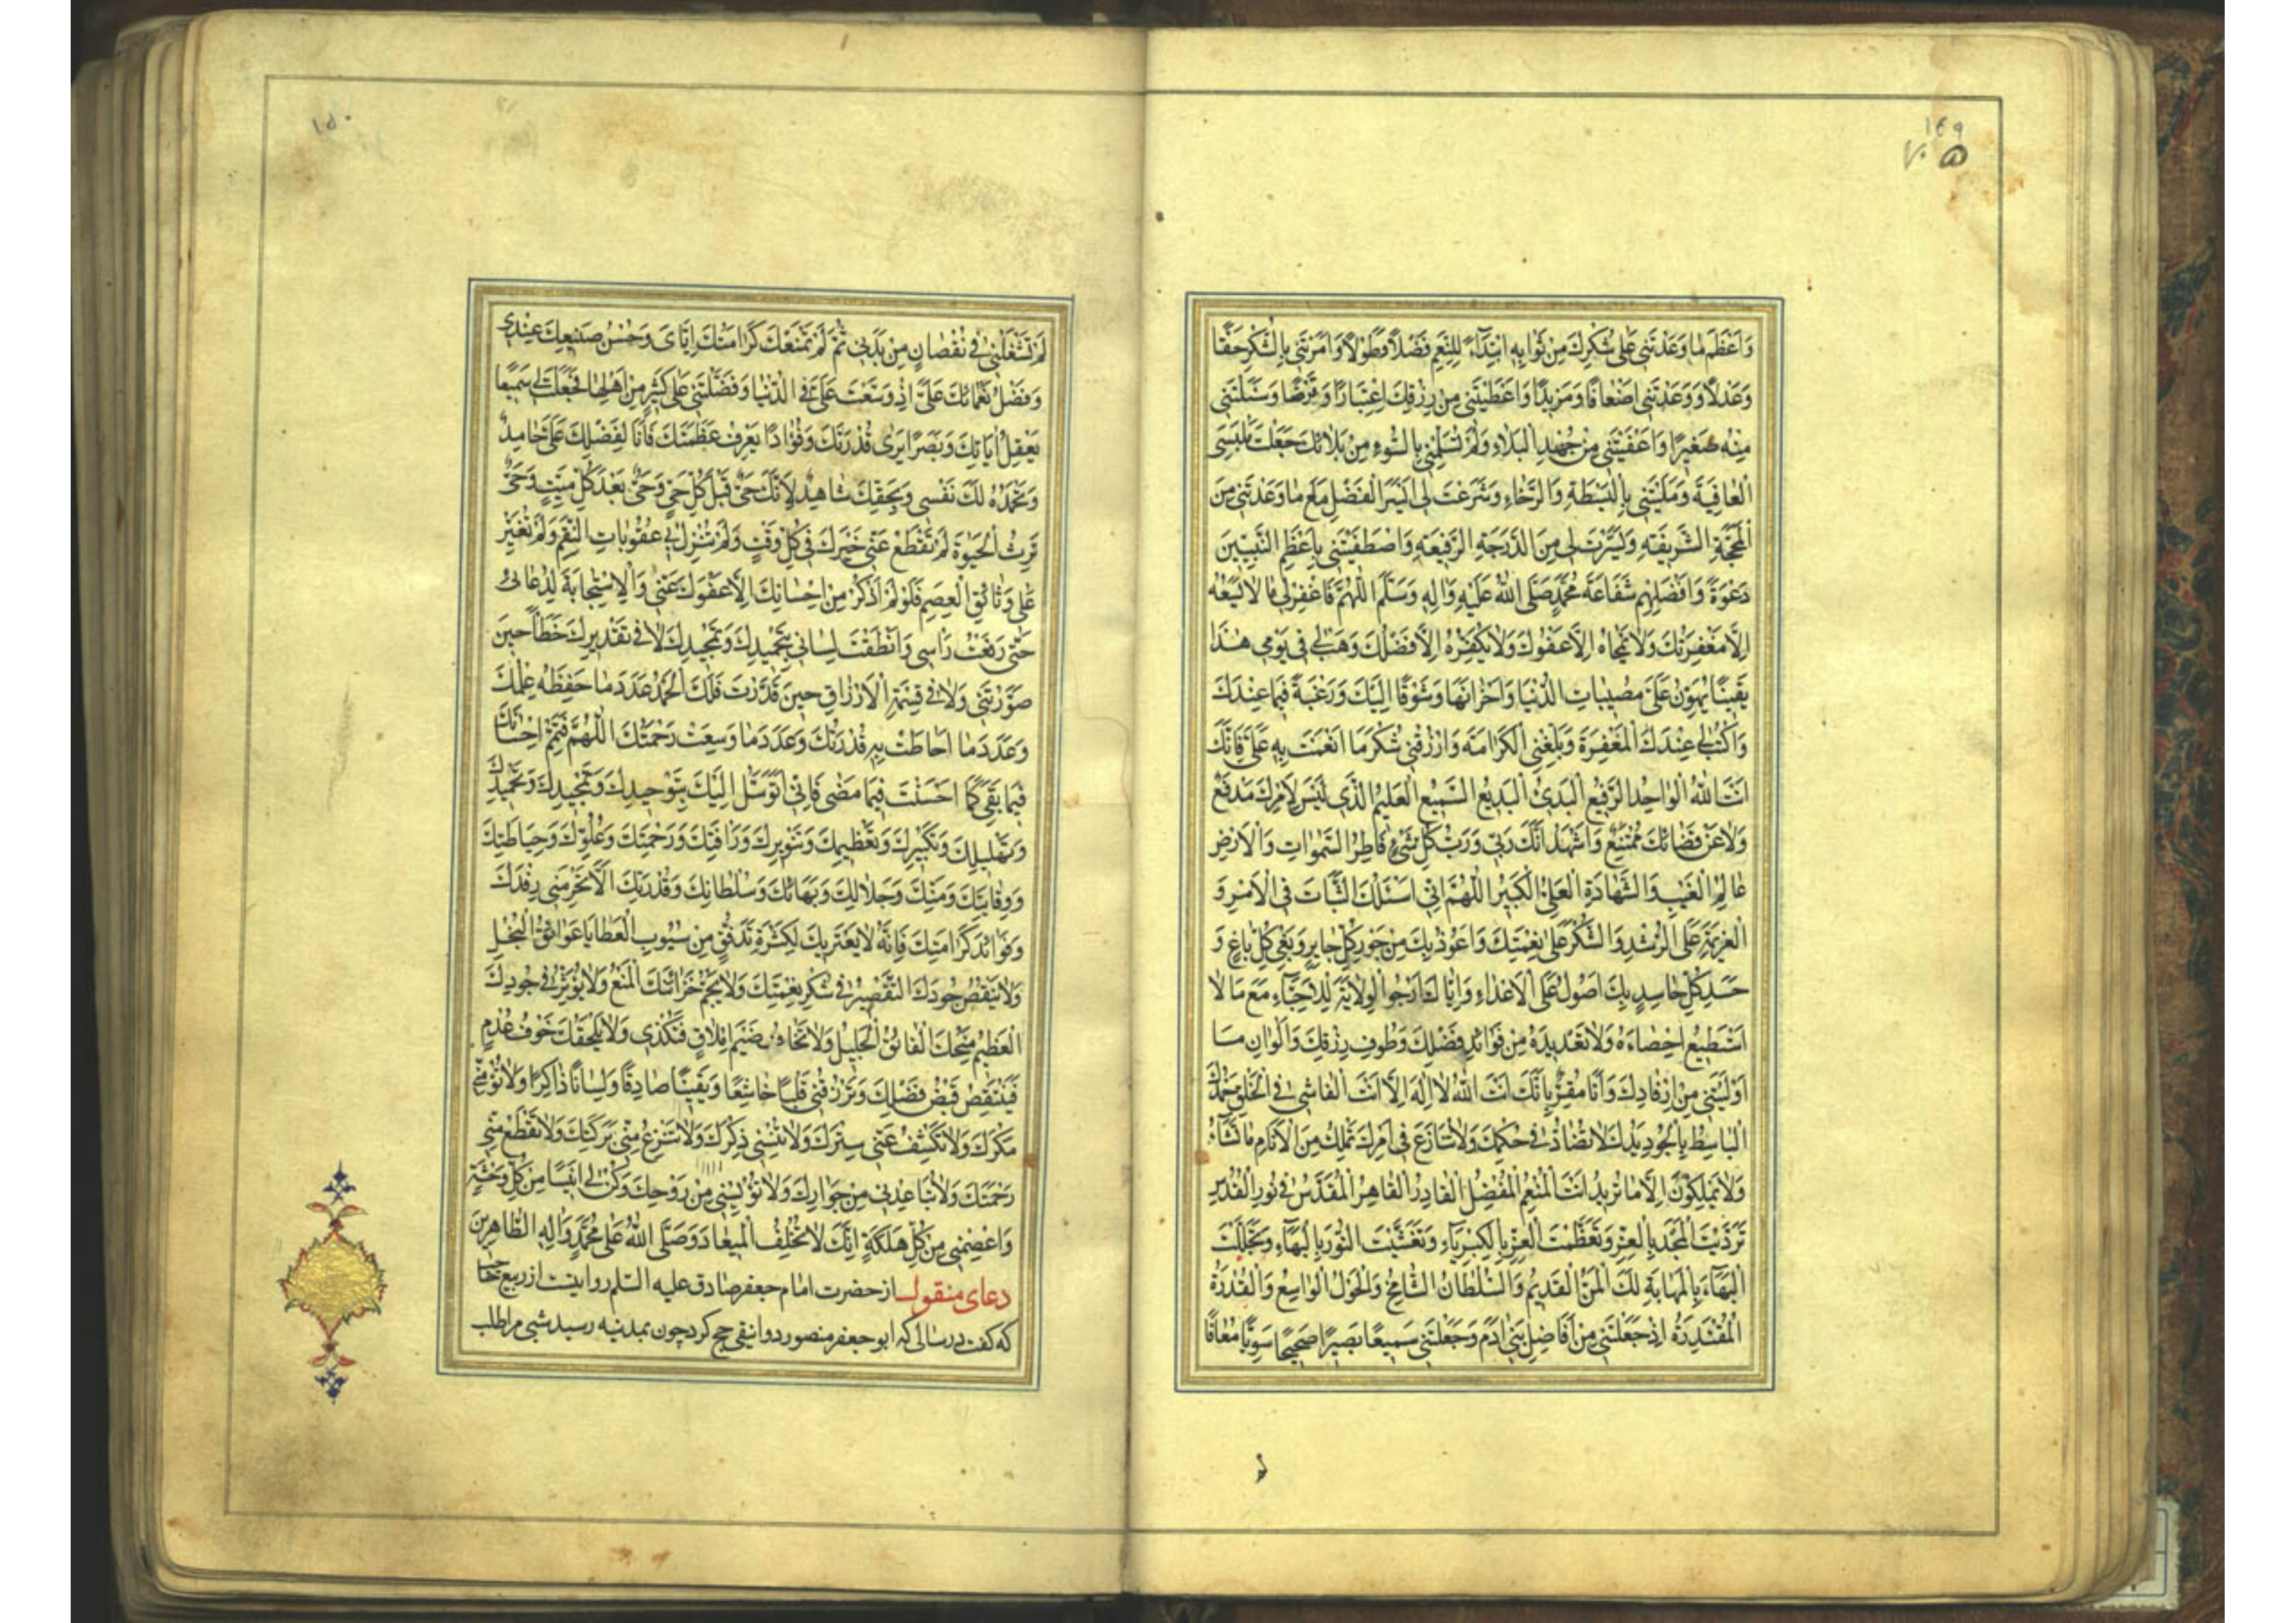 ١٤٩
وَاَعْظَمَ مٰا وَعَدْتَنى عَلىٰ شُكْرِكَ مِنْ ثَوٰابِهِ ابْتِدٰٓاءً لِلنِّعَمِ فَضْلاً وَطَوْلاً وَاَمَرْتَنى بِالشُّكْرِ حَقًّا
وَعَدْلاً وَوَعَدْتَنى اَضْعٰافًا وَمَزيدًا وَاَعْطَيْتَنى مِنْ رِزْقِكَ اِعْتِبٰارًا وَفَرْضًا وَسَئَلْتَنى
مِنْهُ صَغيرًا وَاَعْفَيْتَنى مِنْ جُهْدِ الْبَلاٰءِ وَلَمْ تُسَلِّمْنى بِالسُّوءِ مِنْ بَلاٰئِكَ جَعَلْتَ مَلْبَسِىَ
الْعٰافِيَةَ وَمَلَّيْتَنى بِالْبَسْطَةِ وَالرَّخٰاءِ وَشَرَعْتَ لى اَيْسَرَ الْفَضْلِ مَعَ مٰا وَعَدْتَنى مِنَ
الْمَحَجَّةِ الشَّريفَةِ وَيَسَّرْتَ لى مِنَ الدَّرَجَةِ الرَّفيعَةِ وَاصْطَفَيْتَنى بِاَعْظَمِ النَّبِيّينَ
دَعْوَةً وَاَفْضَلِهِمْ شَفٰاعَةً مُحَمَّدٍ صَلَّى اللّٰهُ عَلَيْهِ وَاٰلِهِ وَسَلَّمَ اَللّٰهُمَّ فَاغْفِرْ لى مٰا لاٰ يَسَعُهُ
اِلاّٰ مَغْفِرَتُكَ وَلاٰ يَمْحٰاهُ اِلاّٰ عَفْوُكَ وَلاٰ يُكَفِّرُهُ اِلاّٰ فَضْلُكَ وَهَبْ لى فى يَوْمى هٰذٰا
يَقينًا يُهَوِّنُ عَلَىَّ مُصيبٰاتِ الدُّنْيٰا وَاَحْزٰانَهٰا وَشَوْقًا اِلَيْكَ وَرَغْبَةً فيمٰا عِنْدَكَ
وَاكْتُبْ لى عِنْدَكَ الْمَغْفِرَةَ وَبَلِّغْنِى الْكَرٰامَةَ وَارْزُقْنى شُكْرَ مٰا اَنْعَمْتَ بِهِ عَلَىَّ فَاِنَّكَ
اَنْتَ اللّٰهُ الْوٰاحِدُ الرَّفيعُ الْبَدىءُ الْبَديعُ السَّميعُ الْعَليمُ الَّذى لَيْسَ لِاَمْرِكَ مَدْفَعٌ
وَلاٰ عَنْ قَضٰائِكَ مُمْتَنِعٌ وَاَشْهَدُ اَنَّكَ رَبّى وَرَبُّ كُلِّ شَىْءٍ فٰاطِرُ السَّمٰوٰاتِ وَالْاَرْضِ
عٰالِمُ الْغَيْبِ وَالشَّهٰادَةِ الْعَلِىُّ الْكَبيرُ اَللّٰهُمَّ اِنّى اَسْئَلُكَ الثَّبٰاتَ فِى الْاَمْرِ وَ
الْعَزيمَةَ عَلَى الرُّشْدِ وَالشُّكْرَ عَلىٰ نِعْمَتِكَ وَاَعُوذُ بِكَ مِنْ جَوْرِ كُلِّ جٰابِرٍ وَبَغْىِ كُلِّ بٰاغٍ وَ
حَسَدِ كُلِّ حٰاسِدٍ بِكَ اَصُولُ عَلَى الْاَعْدٰاءِ وَاِيّٰاكَ اَرْجُوا لْوِلاٰيَةَ لِلْاَحِبّٰآءِ مَعَ مٰا لاٰ
اَسْتَطيعُ اِحْصٰاءَهُ وَلاٰ تَعْديدَهُ مِنْ فَوٰائِدِ فَضْلِكَ وَطُرَفِ رِزْقِكَ وَاَلْوٰانِ مٰا
اَوْلَيْتَنى مِنْ اِرْفٰادِكَ وَاَنَا مُقِرٌّ بِاَنَّكَ اَنْتَ اللّٰهُ لاٰ اِلٰهَ اِلاّٰ اَنْتَ الْفٰاشى فِى الْخَلْقِ حَمْدُكَ
الْبٰاسِطُ بِالْجُودِ يَدَكَ لاٰ تُضٰادُّ فى حُكْمِكَ وَلاٰ تُنٰازَعُ فى اَمْرِكَ تَمْلِكُ مِنَ الْاَنٰامِ مٰا تَشٰاءُ
وَلاٰ يَمْلِكُونَ اِلاّٰ مٰا تُريدُ اَنْتَ الْمُنْعِمُ الْمُفْضِلُ الْقٰادِرُ الْقٰاهِرُ الْمُقَدَّسُ فى نُورِ الْقُدْسِ
تَرَدَّيْتَ الْمَجْدَ بِالْعِزِّ وَتَعَظَّمْتَ الْعِزَّ بِالْكِبْرِيٰٓاءِ وَتَغَشَّيْتَ النُّورَ بِالْبَهٰٓاءِ وَتَجَلَّلْتَ
الْبَهٰٓاءَ بِالْمَهٰابَةِ لَكَ الْمَنُّ الْقَديمُ وَالسُّلْطٰانُ الشّٰامِخُ وَالْحَوْلُ الْوٰاسِعُ وَالْقُدْرَةُ
الْمُقْتَدِرَةُ اِذْ جَعَلْتَنى مِنْ اَفٰاضِلِ بَنى اٰدَمَ وَجَعَلْتَنى سَميعًا بَصيرًا صَحيحًا سَوِيًّا مُعٰافًا
١٥٠
لَمْ تَشْغَلْنى فى نُقْصٰانٍ مِنْ بَدَنى ثُمَّ لَمْ تَمْنَعْكَ كَرٰامَتُكَ اِيّٰاىَ وَحُسْنُ صَنيعِكَ عِنْدى
وَفَضْلُ نَعْمٰائِكَ عَلَىَّ اِذْ وَسَّعْتَ عَلَىَّ فِى الدُّنْيٰا وَفَضَّلْتَنى عَلىٰ كَثيرٍ مِنْ اَهْلِهٰا فَجَعَلْتَ لى سَمْعًا
يَعْقِلُ اٰيٰاتِكَ وَبَصَرًا يَرىٰ قُدْرَتَكَ وَفُؤٰادًا يَعْرِفُ عَظَمَتَكَ فَاَنَا لِفَضْلِكَ عَلَىَّ حٰامِدٌ
وَتَحْمَدُهُ لَكَ نَفْسى وَبِحَقِّكَ شٰاهِدٌ لِاَنَّكَ حَىٌّ قَبْلَ كُلِّ حَىٍّ وَحَىٌّ بَعْدَ كُلِّ مَيِّتٍ وَحَىٌّ
تَرِثُ الْحَيٰوةَ لَمْ تَقْطَعْ عَنّى خَيْرَكَ فى كُلِّ وَقْتٍ وَلَمْ تُنْزِلْ بى عُقُوبٰاتِ النِّقَمِ وَلَمْ تُغَيِّرْ
عَلَىَّ وَثٰائِقَ الْعِصَمِ فَلَوْ لَمْ اَذْكُرْ مِنْ اِحْسٰانِكَ اِلاّٰ عَفْوَكَ عَنّى وَالْاِسْتِجٰابَةَ لِدُعٰائى
حَتّىٰ رَفَعْتُ رَاْسى وَاَنْطَقْتَ لِسٰانى بِتَحْميدِكَ وَتَمْجيدِكَ لاٰ فى تَقْديرِكَ خَطَاً حينَ
صَوَّرْتَنى وَلاٰ فى قِسْمَةِ الْاَرْزٰاقِ حينَ قَدَّرْتَ فَلَكَ الْحَمْدُ عَدَدَ مٰا حَفِظَهُ عِلْمُكَ
وَعَدَدَ مٰا اَحٰاطَتْ بِهِ قُدْرَتُكَ وَعَدَدَ مٰا وَسِعَتْ رَحْمَتُكَ اَللّٰهُمَّ فَتَمِّمْ اِحْسٰانَكَ
فيمٰا بَقِىَ كَمٰا اَحْسَنْتَ فيمٰا مَضىٰ فَاِنّى اَتَوَسَّلُ اِلَيْكَ بِتَوْحيدِكَ وَتَمْجيدِكَ وَتَحْميدِكَ
وَتَهْليلِكَ وَتَكْبيرِكَ وَتَعْظيمِكَ وَتَنْويرِكَ وَرَافَتِكَ وَرَحْمَتِكَ وَعُلُوِّكَ وَحِيٰاطَتِكَ
وَوِقٰايَتِكَ وَمَنِّكَ وَجَلاٰلِكَ وَبَهٰائِكَ وَسُلْطٰانِكَ وَقُدْرَتِكَ اَلاّٰ تَحْرِمَنى رِفْدَكَ
وَفَوٰائِدَ كَرٰامَتِكَ فَاِنَّهُ لاٰ يَعْتَريكَ لِكَثْرَةِ تَدَفُّقٍ مِنْ سُيُوبِ الْعَطٰايٰا عَوٰائِقُ الْبُخْلِ
وَلاٰ يَنْقُصُ جُودَكَ التَّقْصيرُ فى شُكْرِ نِعْمَتِكَ وَلاٰ يُجِمُّ خَزٰائِنَكَ الْمَنْعُ وَلاٰ يُؤَثِّرُ فى جُودِكَ
الْعَظيمِ مِنَحُكَ الْفٰائِقُ الْجَليلُ وَلاٰ تَخٰافُ ضَيْمَ اِمْلاٰقٍ فَتُكْدِىَ وَلاٰ يَلْحَقُكَ خَوْفُ عُدْمٍ
فَيَنْقُصَ فَيْضُ فَضْلِكَ وَتَرْزُقَنى قَلْبًا خٰاشِعًا وَيَقينًا صٰادِقًا وَلِسٰانًا ذٰاكِرًا وَلاٰ تُؤْمِنّى
مَكْرَكَ وَلاٰ تَكْشِفْ عَنّى سِتْرَكَ وَلاٰ تُنْسِنى ذِكْرَكَ وَلاٰ تَنْزِعْ مِنّى بَرَكَتَكَ وَلاٰ تَقْطَعْ مِنّى
رَحْمَتَكَ وَلاٰ تُبٰاعِدْنى مِنْ جَوٰارِكَ وَلاٰ تُؤْيِسْنى مِنْ رَوْحِكَ وَكُنْ لى اَنيسًا مِنْ كُلِّ وَحْشَةٍ
وَاعْصِمْنى مِنْ كُلِّ هَلَكَةٍ اِنَّكَ لاٰ تُخْلِفُ الْميعٰادَ وَصَلَّى اللّٰهُ عَلىٰ مُحَمَّدٍ وَاٰلِهِ الطّٰاهِرينَ
دعاى منقول از حضرت امام جعفر صادق عليه السّلم روايتست از ربيع حاجب
كه كفت در سالى كه ابو جعفر منصور دوانيقى حج كرد چون بمدينه رسيد شبى مرا طلب